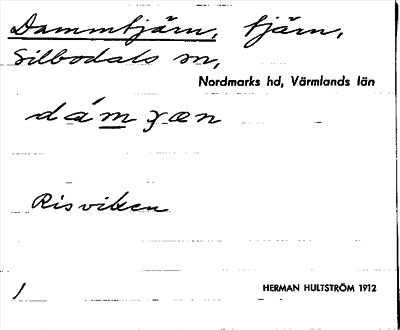 Dammtjärn, tjärn,
Silbodals sn,
Nordmarks hd, Värmlands län
Risviken
1
HERMAN HULTSTRÖM 1912